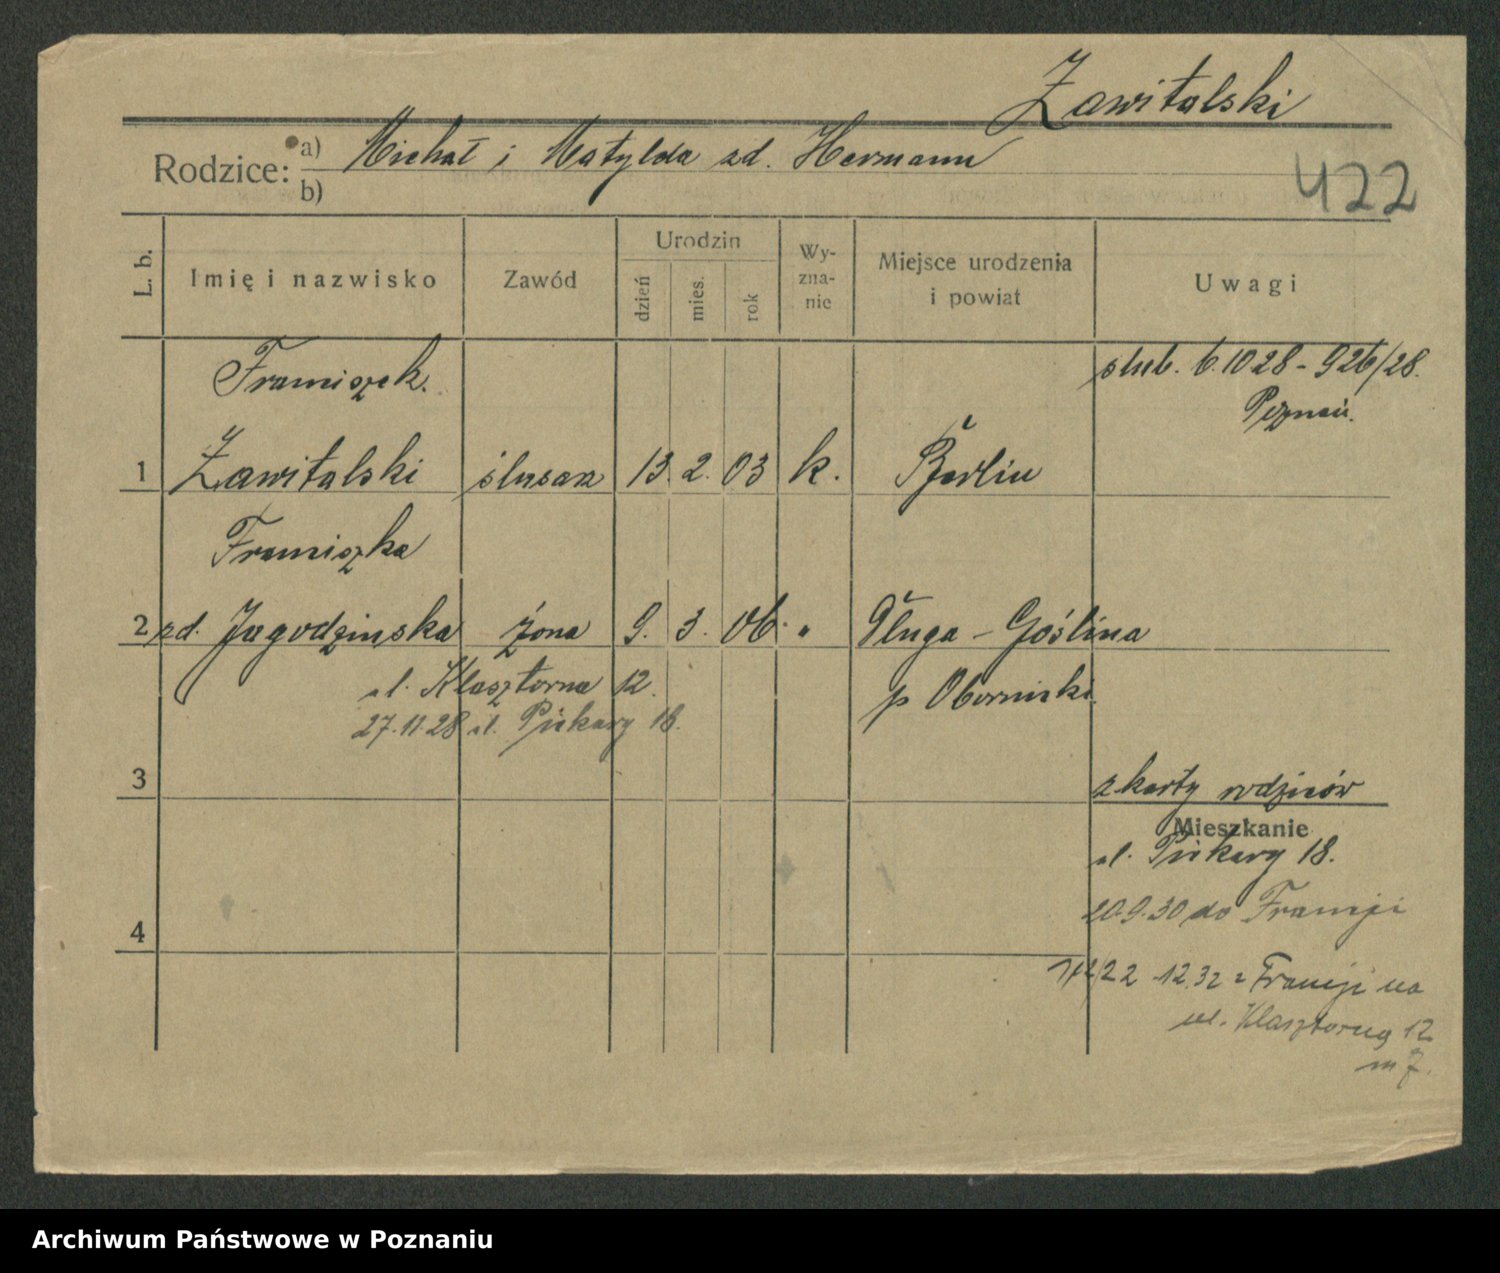 Zawitalski
Rodzice: a) Michał i Matylda zd. Hermann
b)
422
L. b.
Imię i nazwisko
Zawód
Urodzin
dzień
mies.
rok
Wy-
zna-
nie
Miejsce urodzenia
i powiat
Uwagi
Franciszek.
ślub. 6.10 28 - 926/28.
Poznań.
1 Zawitalski ślusarz 13. 2. 03 k. Berlin
Franciszka
2 zd. Jagodzinska żona 9. 3. 06. " Długa - Goślina
ul. Klasztorna 12.
p Obornicki.
27.11.28 ul. Piekary 18.
3
z karty rodziców
Mieszkanie
ul. Piekary 18.
20.9.30 do Francji
4
22 12.32 z Francji na
ul. Klasztorną 12
m 7.
Archiwum Państwowe w Poznaniu